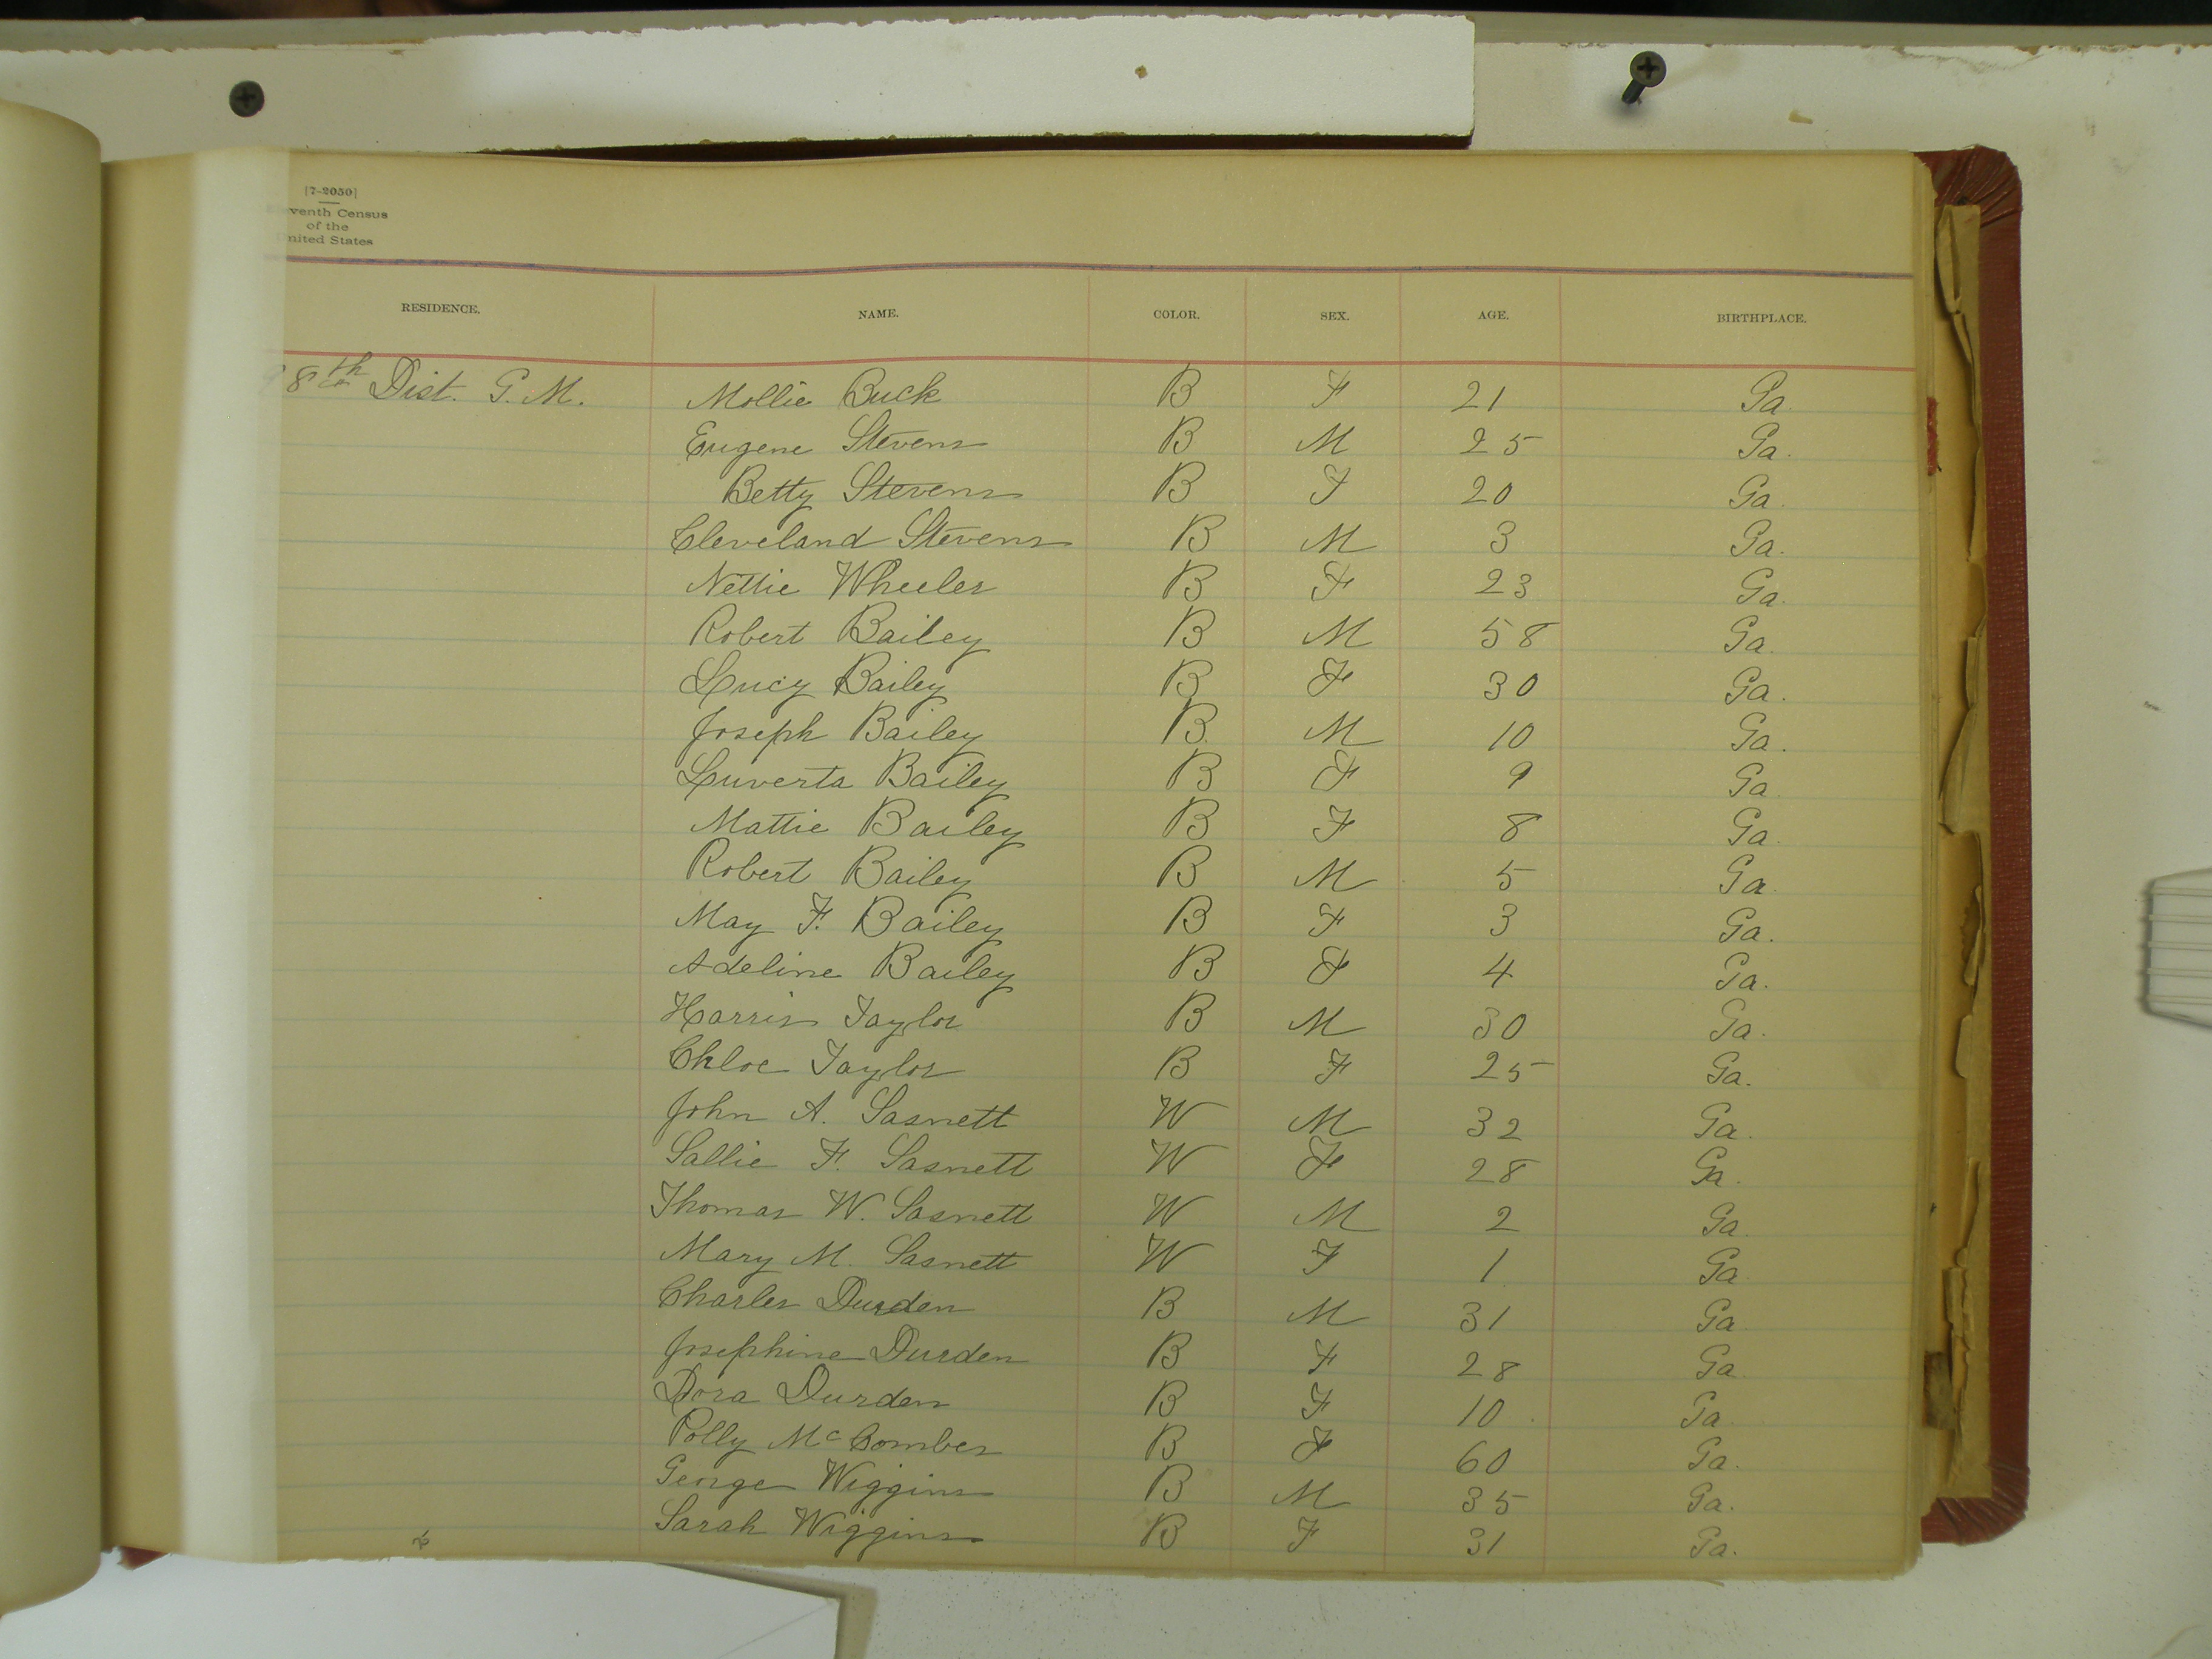 [7-2050]
eventh Census
of the
United States
RESIDENCE. NAME. COLOR. SEX. AGE. BIRTHPLACE.
98th Dist. G. M. Mollie Buck B F 21 Ga.
Eugene Stevens B M 25 Ga.
Betty Stevens B F 20 Ga.
Cleveland Stevens B M 3 Ga.
Nettie Wheeler B F 23 Ga.
Robert Bailey B M 58 Ga.
Lucy Bailey B F 30 Ga.
Joseph Bailey B M 10 Ga.
Luverta Bailey B F 9 Ga.
Mattie Bailey B F 8 Ga.
Robert Bailey B M 5 Ga.
May F. Bailey B F 3 Ga.
Adeline Bailey B F 4 Ga.
Harris Taylor B M 30 Ga.
Chloe Taylor B F 25 Ga.
John A. Sasnett W M 32 Ga.
Sallie F. Sasnett W F 28 Ga.
Thomas W. Sasnett W M 2 Ga
Mary M. Sasnett W F 1 Ga
Charles Durden B M 31 Ga
Josephine Durden B F 28 Ga
Dora Durden B F 10 Ga
Polly McComber B F 60 Ga.
George Wiggins B M 35 Ga.
Sarah Wiggins B F 31 Ga.